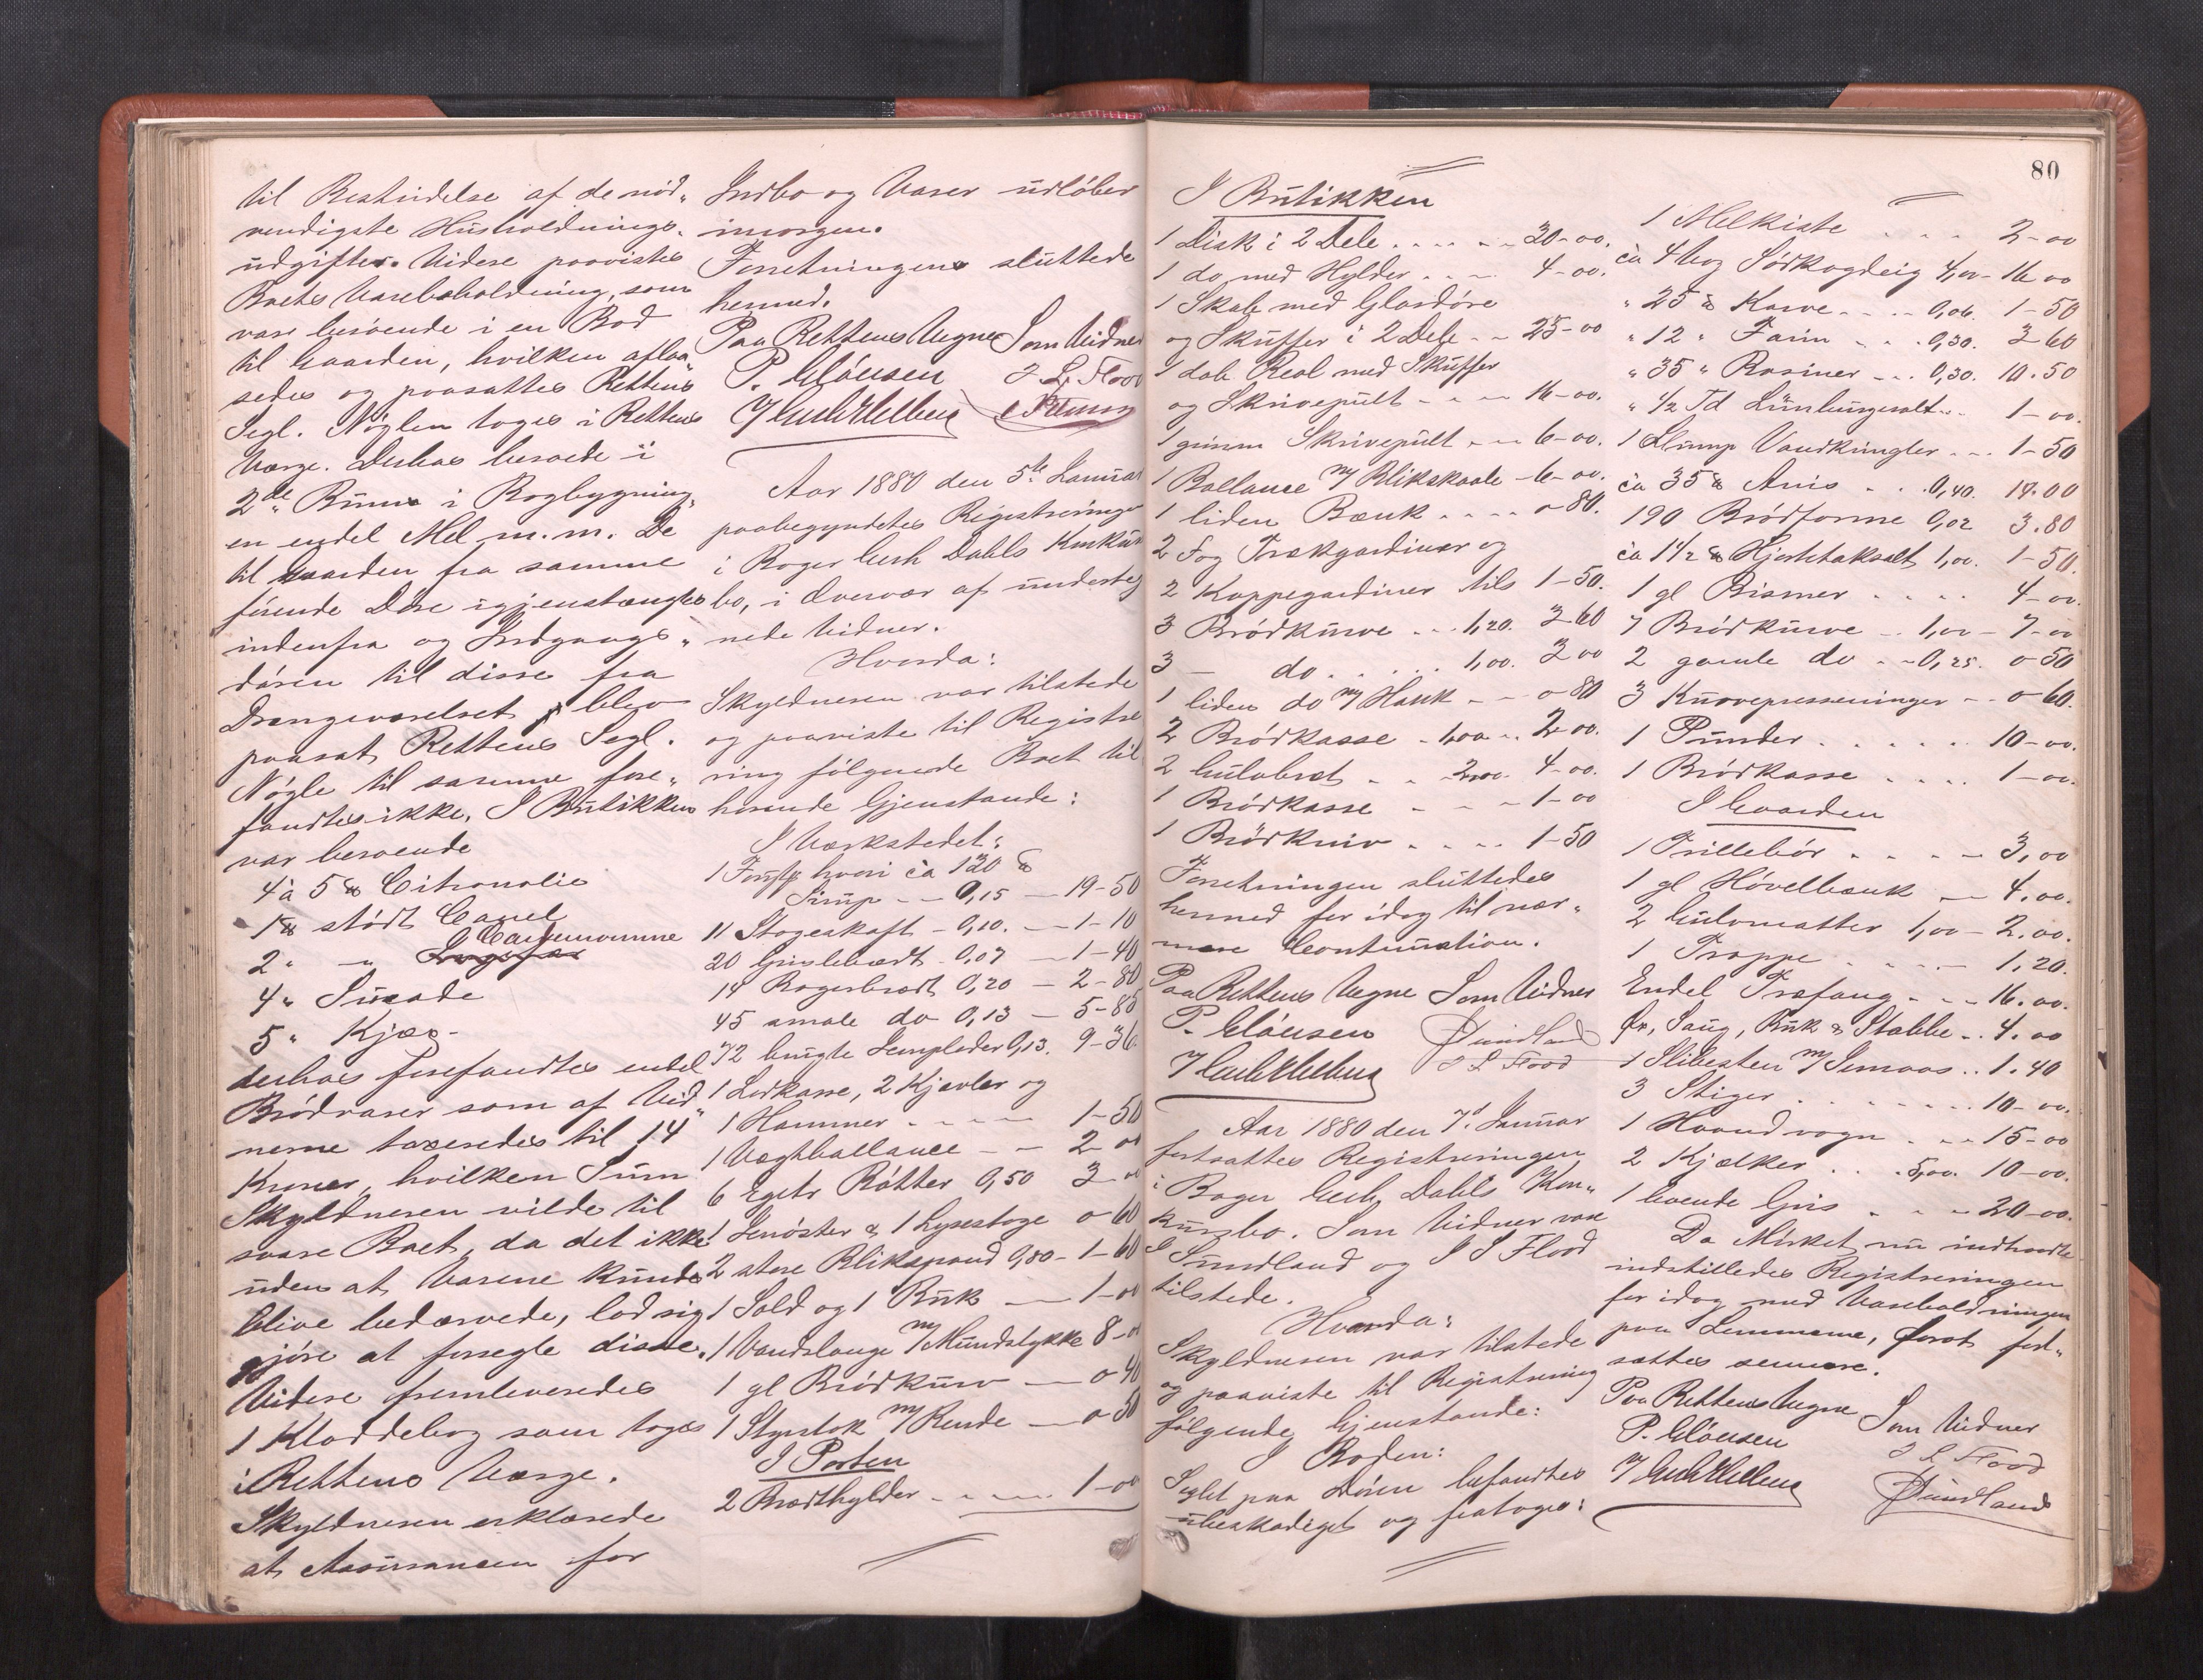 til Bestridelse af de nød„
vendigste Husholdnings„
udgifter. Videre paavistes
Boets Varebeholdning, som
var beroende i en Bod
til Gaarden, hvilken aflaa„
sedes og paasattes Rettens
Segl. Nøglen toges i Rettens
Værge. Desuden beroede i
2de Rum i Bagbygning„
en endel Mel m.m. De
til Gaarden fra samme
førende Døre igjenstængtes
indenfra og Indgangs„
døren til disse fra
Drengeværelset blev
paasat Rettens Segl.
Nøgle til samme fore„
fandtes ikke. I Butikken
var beroende
4 à 5 ℔ Citronolie
1 ℔ stødt Canel
2 „ — „ Cardemomme
4 „ Sucade
5 „ Kjæx
desuden forefandtes endel
Brødvarer som af Vid„
nerne taxeredes til 14
Kroner, hvilken Sum
Skyldneren vilde til
svare Boet, da det ikke
uden at Varene kunde
blive bedærvede, lod sig
gjøre at forsegle disse.
Videre fremleveredes
1 Kladdebog som toges
i Rettens Værge.
Skyldneren erklærede
at Assurancen for
Indbo og Varer udløber
imorgen.
Forretningen sluttede
hermed.
Paa Rettens Vegne Som Vidner
P. Clausen J L Flood
Aar 1880 den 5te Januar
paabegyndtes Registrering
i Roger Dahls Konkurs
bo, i Overvær af underteg
nede Vidner.
Hvorda:
Skyldneren var tilstede
og paaviste til Registre
ring følgende Boet til
hørende Gjenstande:
I Værkstedet:
1 hvori ca 130 ℔
Sirup — 0,15 — 19-50
11 Stageskaft - 0,10. — 1-10
20 — 0,07 — 1-40
14 Bagerbrædt 0,20 — 2-80
45 smale do 0,13 — 5-85
72 0,13. 9-36
1 Lerkasse, 2 Kjevler og
1 Hammer - - - - 1-50
1 Vægtballance - - 2-00
6 Egets Bøtter 0,50 3-00
1 & 1 Lysestage 0-60
2 store Blikspand 0,80 - 1-60
1 Sold og 1 Buk — 1-00
1 Vandslange m/ Mundstykke 8-00
1 gl Brødkurv — 0-40
1 m/ Rende — 0-50
I Porten
2 Brødhylder - - - - 1-00
80
I Butikken
1 Disk i 2 Dele . . . . . 30-00.
1 do med Hylder . . . 4-00.
1 Skab med Glasdøre
og Skuffer i 2 Dele - - 25-00
1 dob. Reol med Skuffer
og Skrivepult - - - 16-00.
1 Skrivepult - - - 6-00.
1 Ballance m/ Blikskaale - 6-00.
1 liden Bænk . . . . 0 80.
2 Fag Trækgardiner og
2 Kappegardiner tils 1-50.
3 Brødkurve . . . 1,20. 3 60
3 — do . . . . 1,00. 3 00
1 liden do m/ Hank - - 0 80
2 Brødkasse - 1,00 . . 2-00.
2 Gulvbræt . . . 2,00. 4-00.
1 Brødkasse - - - 1-00
1 Brødkniv . . . . 1-50
Forretningen sluttedes
hermed for idag til nær„
mere Continuation.
Paa Rettens Vegne Som Vidner
P. Clausen Sundland
J L Flood
Aar 1880 den 7d. Januar
fortsattes Registreringen
i Roger Dahls Kon„
kursbo. Som Vidner vare
Sundland og J L Flood
tilstede.
Hvorda:
Skyldneren var tilstede
og paaviste til Registrering
følgende Gjenstande:
I Boden:
Seglet paa Døren befandtes
ubeskadiget og fratoges:
1 Melkiste . . . 2-00
ca 4 Vog Sødkogdeig 4,00 - 16 00
„ 25 ℔ Karve - - - - 0,06. 1-50
„ 12 „ Farin - - . 0,30. 3 60
„ 35 „ Rosiner - . . 0,30. 10.50
„ 1/2 Td Lünburgsalt . . 1-00.
1 Slump Vandkringler . . . 1-50
ca 35 ℔ Anis . . . 0,40. 14.00
190 Brødforme 0,02 3.80
ca 1 1/2 ℔ Hjortetaksalt 1,00. 1-50.
1 gl Bismer . . . . 4-00.
7 Brødkurve . . 1,00 - 7-00
2 gamle do . . 0,25. 0 50
3 Kurvepresenninger - . 0 60.
1 Punder . . . . . 10-00.
1 Brødkasse . . . . 1-00.
I Gaarden
1 Trillebør . . . . — 3,00
1 gl Høvelbænk — 4.00.
2 Gulvmatter 1,00 - 2.00.
1 Trappe . . . . — 1,20.
Endel Træfang . . . 16.00.
Øx, Saug, Buk & Stabbe . . 4.00
1 Slibesten m/ . . 1.40
3 Stiger . . . . . . . 10-00.
1 Haandvogn . . . 15-00
2 Kjælker . . . 5,00. 10-00.
1 levende Gris . . . 20-00.
Da Mørket nu indtraadte
indstilledes Registreringen
for idag med Vareboldningen
paa Lemmene, forat fort„
sættes senere.
Paa Rettens Vegne Som Vidner
P. Clausen J L Flood
Sundland